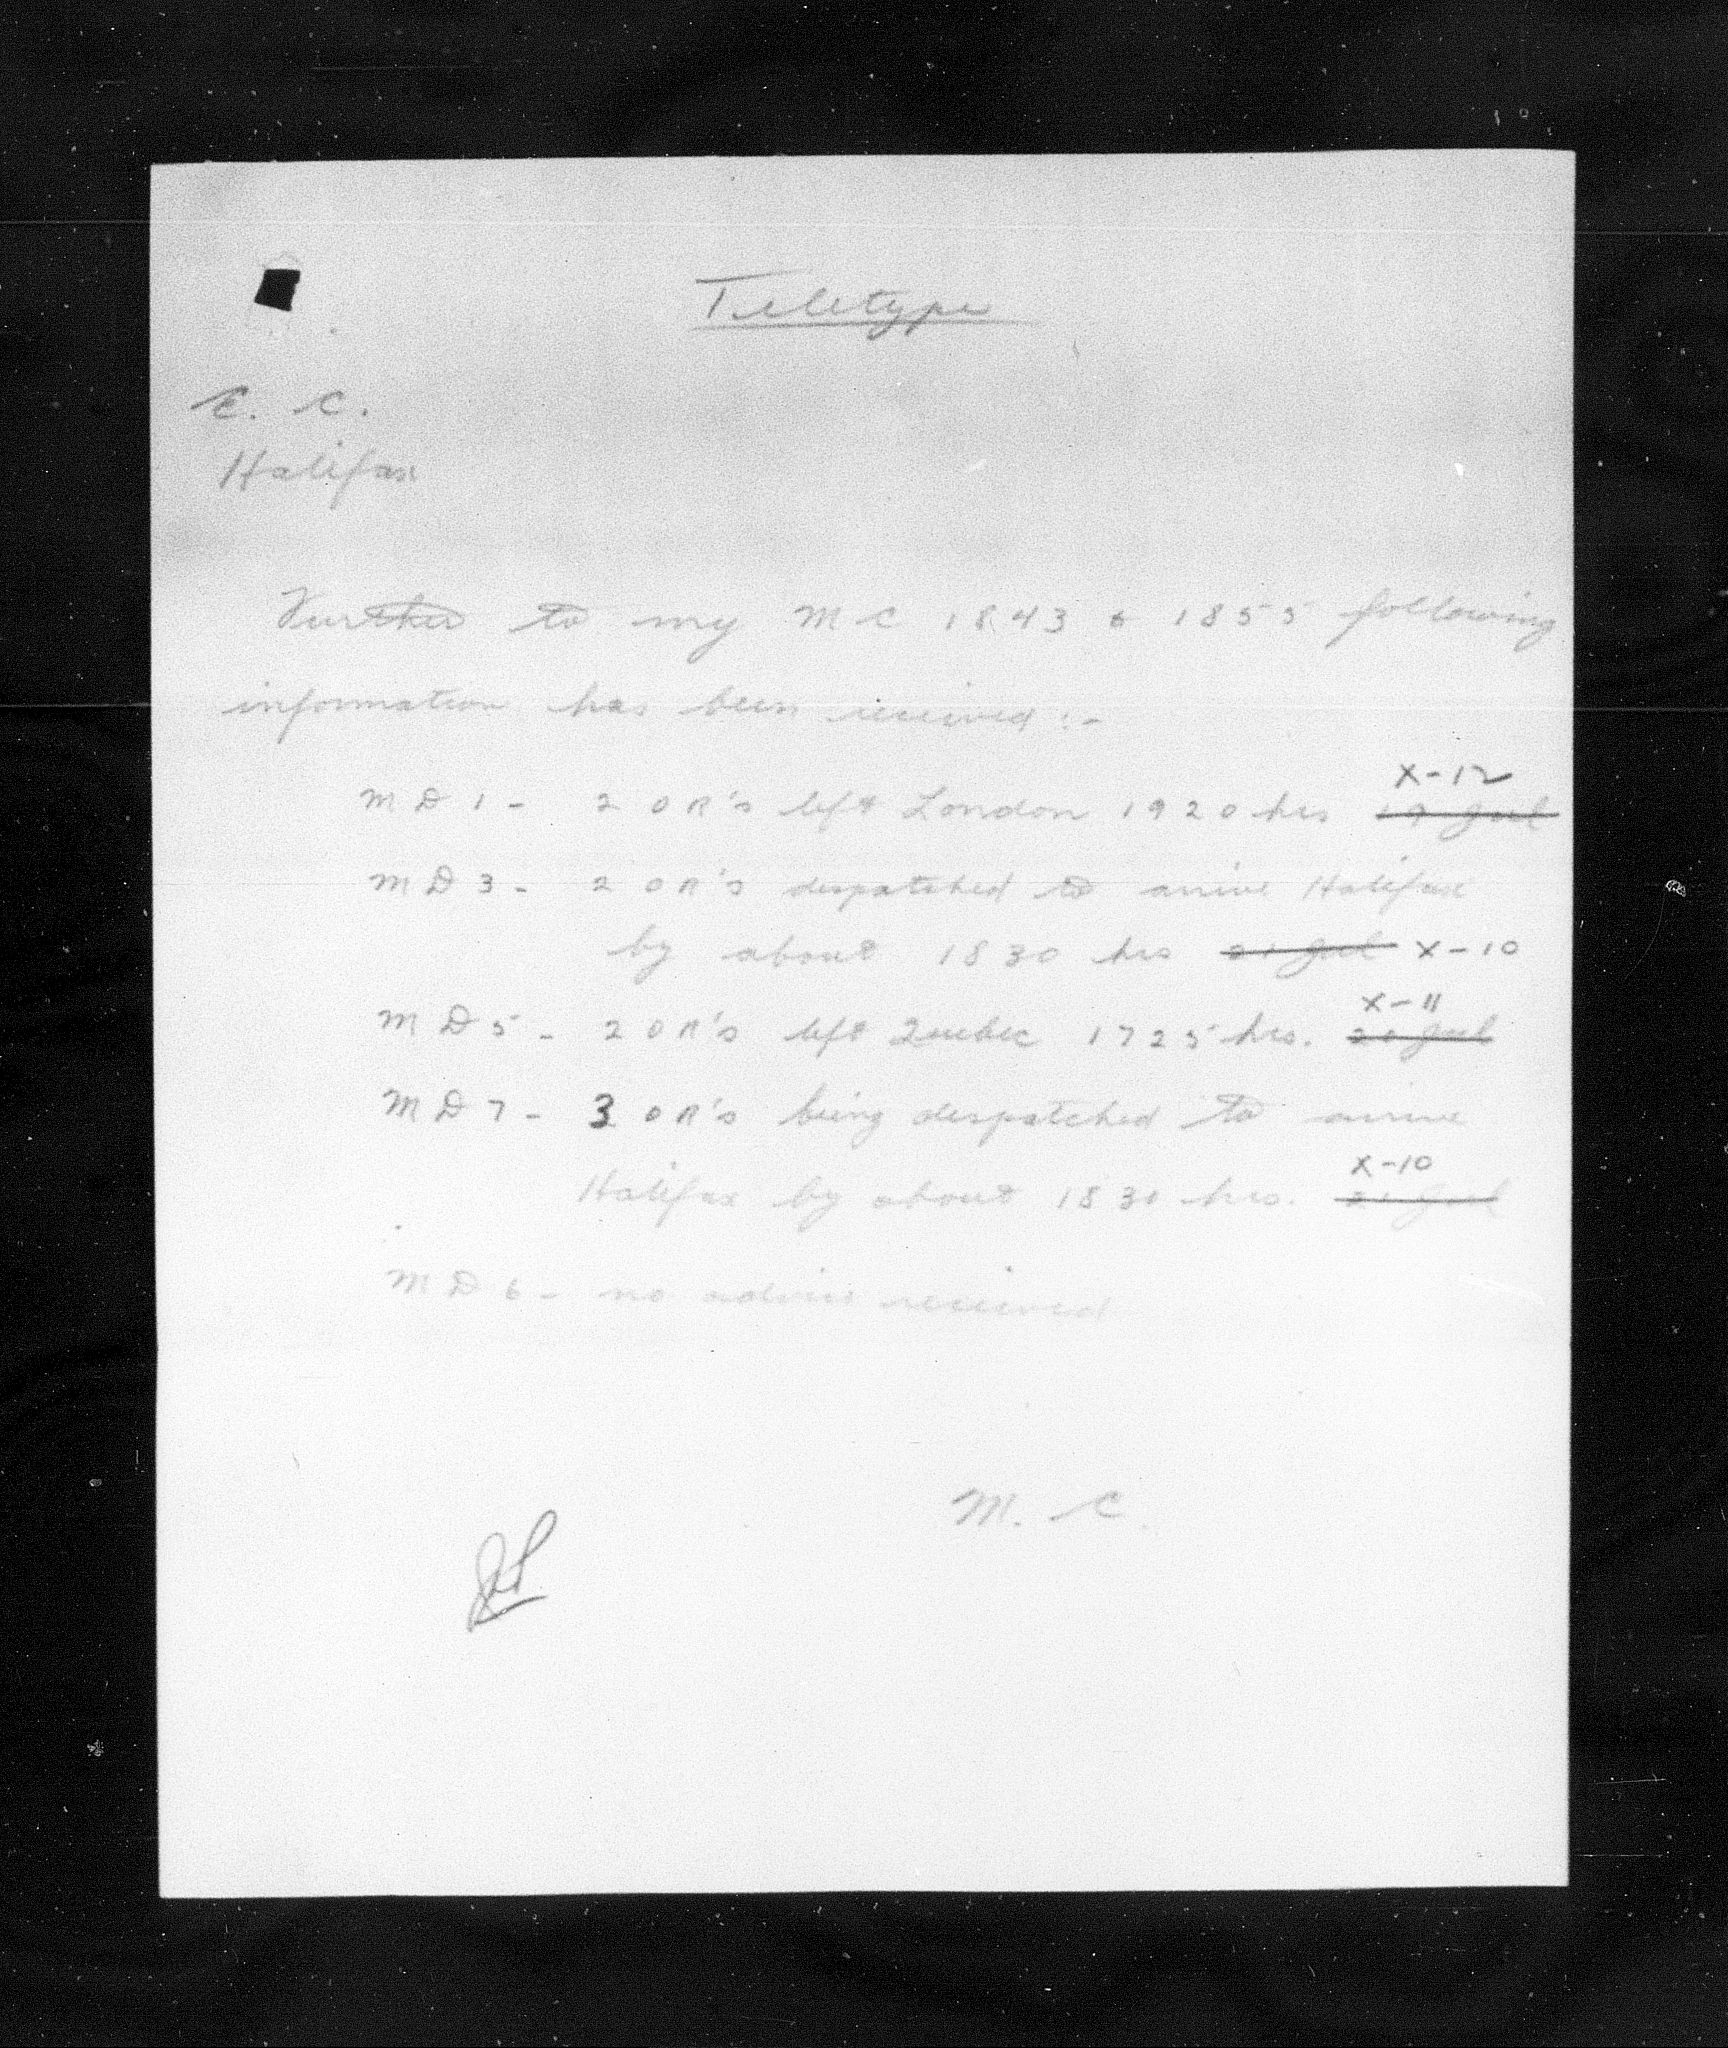 Teletype
E. C.
Halifax
Further to my MC 1843 & 1855 following
information has been received :-
X-12
MD 1 - 2 OR's left London 1920 hrs 19 Jul
MD 3 - 2 OR's despatched to arrive Halifax
by about 1830 hrs 21 Jul X-10
X-11
MD 5 - 2 OR's left Quebec 1725 hrs. 20 Jul
MD 7 - 3 OR's being despatched to arrive
X-10
Halifax by about 1830 hrs. 21 Jul
MD 6 - no advice received
M. C.